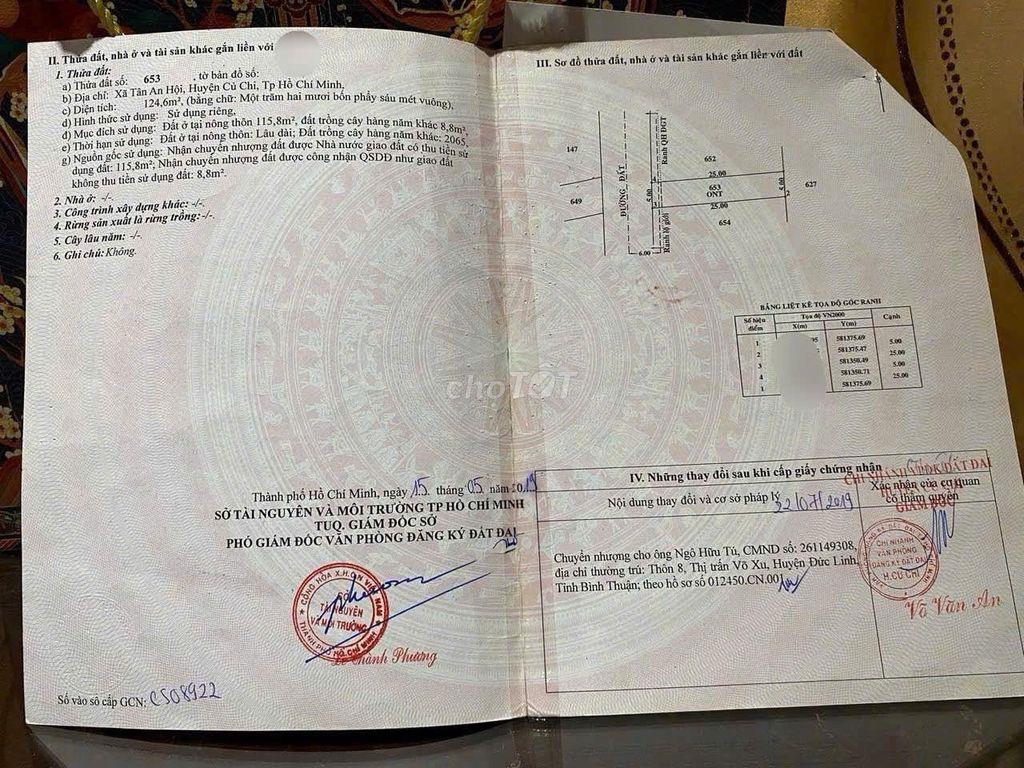 II. Thửa đất, nhà ở và tài sản khác gắn liền với
1. Thửa đất:
a) Thửa đất số: 653 , tờ bản đồ số:
b) Địa chỉ: Xã Tân An Hội, Huyện Củ Chi, Tp Hồ Chí Minh,
c) Diện tích: 124,6m², (bằng chữ: Một trăm hai mươi bốn phẩy sáu mét vuông),
d) Hình thức sử dụng: Sử dụng riêng,
đ) Mục đích sử dụng: Đất ở tại nông thôn 115,8m², đất trồng cây hàng năm khác 8,8m²,
e) Thời hạn sử dụng: Đất ở tại nông thôn: Lâu dài; Đất trồng cây hàng năm khác: 2065,
g) Nguồn gốc sử dụng: Nhận chuyển nhượng đất được Nhà nước giao đất có thu tiền sử
dụng đất: 115,8m²; Nhận chuyển nhượng đất được công nhận QSDĐ như giao đất
không thu tiền sử dụng đất: 8,8m².
2. Nhà ở: -/-.
3. Công trình xây dựng khác: -/-.
4. Rừng sản xuất là rừng trồng: -/-.
5. Cây lâu năm: -/-.
6. Ghi chú: Không.
Thành phố Hồ Chí Minh, ngày 15 tháng 05 năm 2019
SỞ TÀI NGUYÊN VÀ MÔI TRƯỜNG TP HỒ CHÍ MINH
TUQ. GIÁM ĐỐC SỞ
PHÓ GIÁM ĐỐC VĂN PHÒNG ĐĂNG KÝ ĐẤT ĐAI
CỘNG HÒA X.H.C.N VIỆT NAM
SỞ
TÀI NGUYÊN
VÀ MÔI TRƯỜNG
THÀNH PHỐ HỒ CHÍ MINH
Thành Phương
Số vào sổ cấp GCN: CS08922
III. Sơ đồ thửa đất, nhà ở và tài sản khác gắn liền với đất
147
649
ĐƯỜNG ĐẤT
Ranh QH ĐGT
Ranh lộ giới
652
25.00
4
5.00
653
ONT
5.00
2
627
3
25.00
654
6.00
BẢNG LIỆT KÊ TỌA ĐỘ GÓC RANH
Số hiệu điểm
Tọa độ VN2000
Cạnh
X(m)
Y(m)
1 581375.69
5.00
2 581375.47
25.00
3 581350.49
5.00
4 581350.71
25.00
1 581375.69
IV. Những thay đổi sau khi cấp giấy chứng nhận
Nội dung thay đổi và cơ sở pháp lý
Xác nhận của cơ quan
có thẩm quyền
CHI NHÁNH VPĐK ĐẤT ĐAI
GIÁM ĐỐC
22/07/2019
Chuyển nhượng cho ông Ngô Hữu Tú, CMND số: 261149308,
địa chỉ thường trú: Thôn 8, Thị trấn Võ Xu, Huyện Đức Linh,
Tỉnh Bình Thuận; theo hồ sơ số 012450.CN.001
CHI NHÁNH
VĂN PHÒNG
ĐĂNG KÝ ĐẤT ĐAI
H.CỦ CHI
Võ Văn An
choTỐT